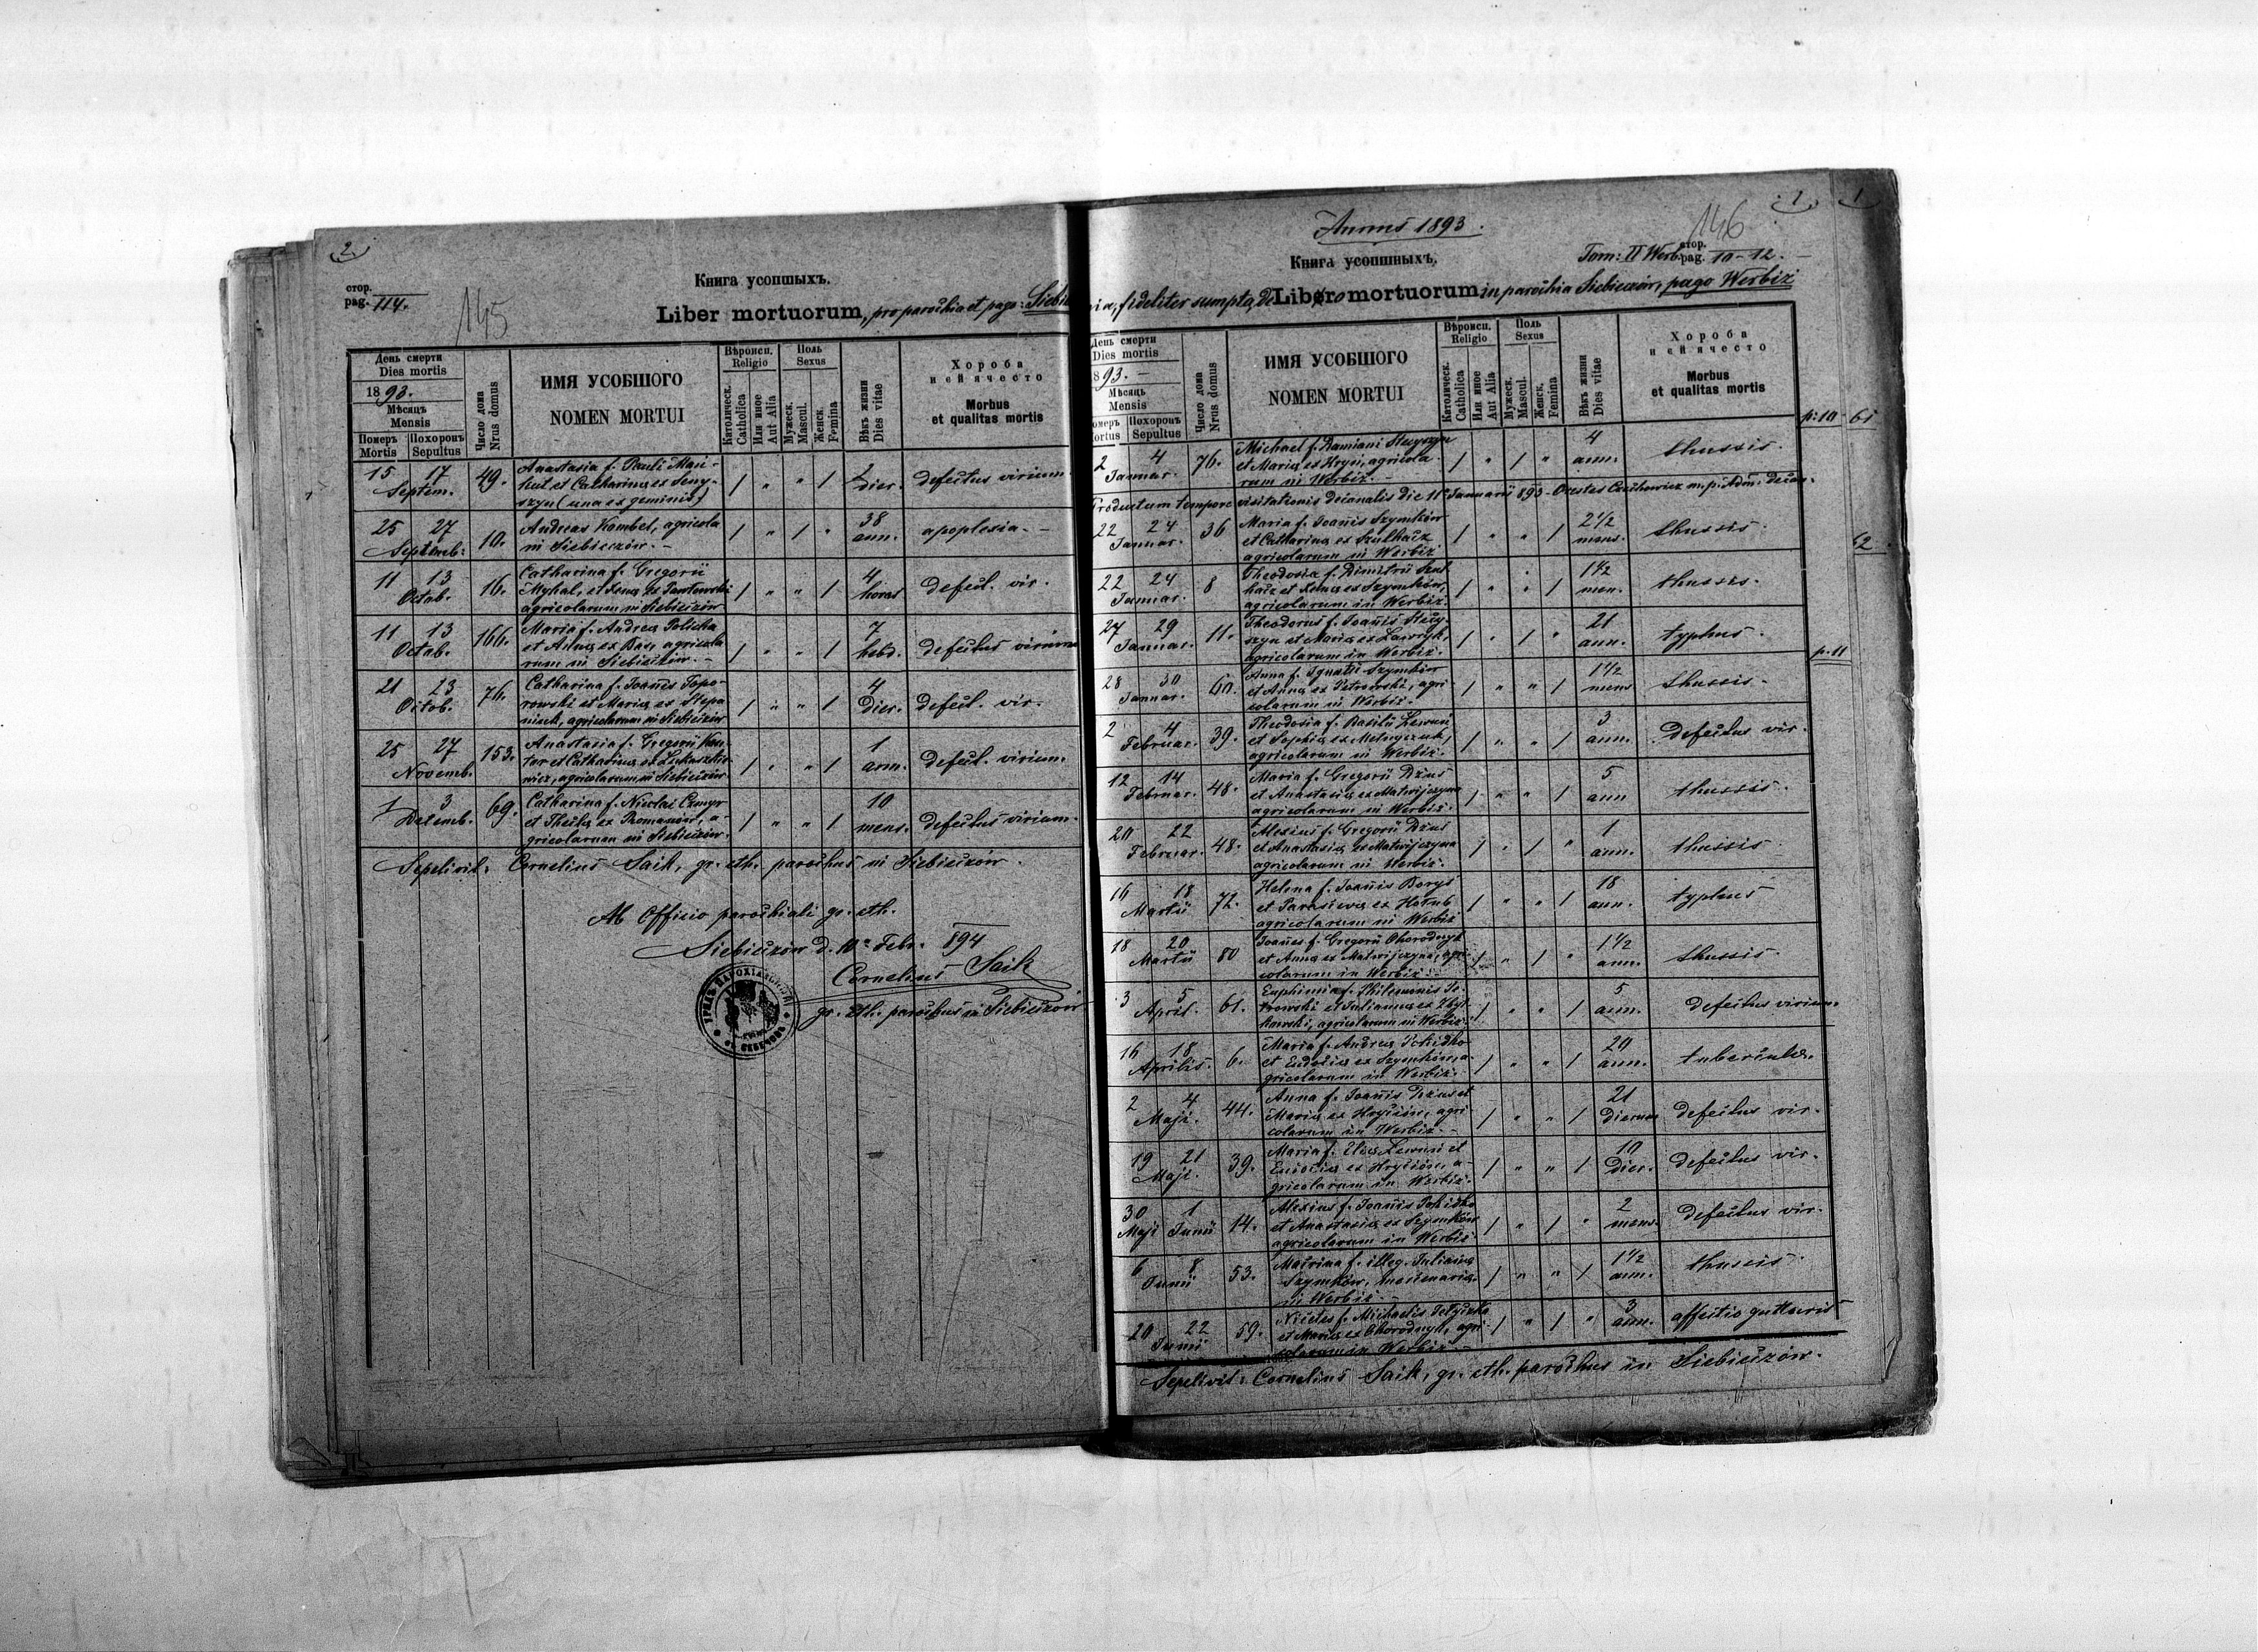 2
стор.
pag. 114.
145
Книга усопшыхъ.
Liber mortuorum, pro parochia et pago:
День смерти
Dies mortis
1893.
Мѣсяцъ
Mensis
Померъ Похоронъ
Mortis Sepultus
Число дома
Nrus domus
ИМЯ УСОБШОГО
NOMEN MORTUI
Вѣроисп.
Religio
Католическ.
Catholica
Или иное
Aut Alia
Поль
Sexus
Мужеск.
Mascul.
Женск.
Femina
Вѣкъ жизни
Dies vitae
Хороба
и ей ячесто
Morbus
et qualitas mortis
15 17 Septem. 49. Anastasia f. Pauli
et Catharina ex Seny-
szyn (una ex geminis) / " " / 2 dier. defectus virium
25 27 Septemb. 10. Andreas Kambel, agricola
in Siebieczów. – / " / " 38 ann. apoplexia. –
11 13 Octob. 16. Catharina f. Gregorii
Myhal, et Xenia ex Pawlowski
agricolarum in Siebieczów / " " / 4 horas defect. vir.
11 13 Octob. 166. Maria f. Andrea Policha
et Anna ex Bas, agricola
rum in Siebieczów. – / " " / 7 hebd. defectus virium
21 23 Octob. 76. Catharina f. Joannis Topo-
rowski et Maria ex Stepa
niuk, agricolarum in Siebieczów / " " / 4 dier. defect. vir.
25 27 Novemb. 153. Anastasia f. Gregorii
et Catharina ex Lukaszke-
wicz, agricolarum in Siebieczów / " " / 1 ann. defect. virium.
1 3 Dezemb. 69. Catharina f. Nicolai
et Thecla ex Romanów, a-
gricolarum in Siebieczów. / " " / 10 mens. defectus virium.
Sepelivit: Cornelius Saik, gr. cth. parochus in Siebieczów.
Ab Officio parochiali gr. cth.
Siebieczów d. 10 Febr. 894
Cornelius Saik
gr. cth. parochus in Siebieczów
1
1
146
Annus 1893.
Книга усопшныхъ.
Tom: II Werb. стор. pag. 10–12. –
fideliter sumpta de Libro mortuorum in parochia Siebieczów, pago Werbiż
День смерти
Dies mortis
1893. –
Мѣсяцъ
Mensis
Померъ Похоронъ
Mortus Sepultus
Число дома
Nrus domus
ИМЯ УСОБШОГО
NOMEN MORTUI
Вѣроисп.
Religio
Католическ.
Catholica
Или иное
Aut Alia
Поль
Sexus
Мужеск.
Mascul.
Женск.
Femina
Вѣкъ жизни
Dies vitae
Хороба
и ей ячесто
Morbus
et qualitas mortis
p. 10 61
2 4 Januar. 76. Michael f. Damiani Steczyszyn
et Maria ex Hryń, agricola
rum in Werbiż. – / " / " 4 ann. thussis.
Productum tempore visitationis decanalis die 11 Januarii 893 – Orestes Czechowicz m.p. Adm. decan.
22 24 Januar. 36 Maria f. Joannis Szymków
et Catharina ex Szulhacz
agricolarum in Werbiż / " " / 2 1/2 mens. thussis.
62
22 24 Januar. 8 Theodosia f. Dimitrii Szul
hacz et Xenia ex Szymków,
agricolarum in Werbiż. / " " / 1 1/2 men. thussis.
27 29 Januar. 11. Theodorus f. Joannis Steczy-
szyn et Maria ex Lawryk,
agricolarum in Werbiż. / " / " 21 ann. typhus.
p. 11
28 30 Januar. 60. Anna f. Ignatii Szymków
et Anna ex Petrowski, agri-
colarum in Werbiż. / " " / 1 1/2 mens thussis.
2 4 Februar. 39. Theodosia f. Basilii Lewun
et Sophia ex Melnyczuk,
agricolarum in Werbiż. / " " / 3 ann. Defectus vir.
12 14 Februar. 48. Maria f. Gregorii Dżus
et Anastasia ex Matwijczyna
agricolarum in Werbiż. / " " / 5 ann thussis.
20 22 Februar. 48. Alexius f. Gregorii Dżus
et Anastasia ex Matwijczyna
agricolarum in Werbiż. / " / " 1 ann. thussis
16 18 Martii 72. Helena f. Joannis Boryś
et Parasieva ex Hołub
agricolarum in Werbiż / " " / 18 ann. typhus
18 20 Martii 80 Joannes f. Gregorii Ohorodnyk
et Anna ex Matwijczyna, agri-
colarum in Werbiż. / " / " 1 1/2 ann. thussis.
3 5 April. 61. Euphimia f. Philemonis Pe-
trowski et Juliana ex
agricolarum in Werbiż. / " " / 5 ann. defectus virium.
16 18 Aprilis. 6. Maria f. Andrea Pohidko
et Eudocia ex Szymków, a-
gricolarum in Werbiż. / " " / 20 ann. tubercula.
2 4 Maji. 44. Anna f. Joannis Dżus et
Maria ex Hryców, agri-
colarum in Werbiż. – / " " / 21 dierum defectus vir.
19 21 Maji. 39. Maria f. Elia Lewun et
Eudocia ex Hryców, a-
gricolarum in Werbiż. / " " / 10 dier. defectus vir.
30 Maji 1 Junii 14. Alexius f. Joannis Pohidko
et Anastasia ex Szymków
agricolarum in Werbiż / " / " 2 mens. defectus vir.
6 8 Junii 53. Macrina f. illeg. Juliana
Szymków, mercenaria
in Werbiż. – / " " / 1 1/2 ann. thussis.
20 22 Junii 59. Nicetas f. Michaelis
et Maria ex Ohorodnyk, agri-
colarum in Werbiż. – / " / " 3 ann. affectio gutturis
Sepelivit: Cornelius Saik, gr. cth. parochus in Siebieczów.